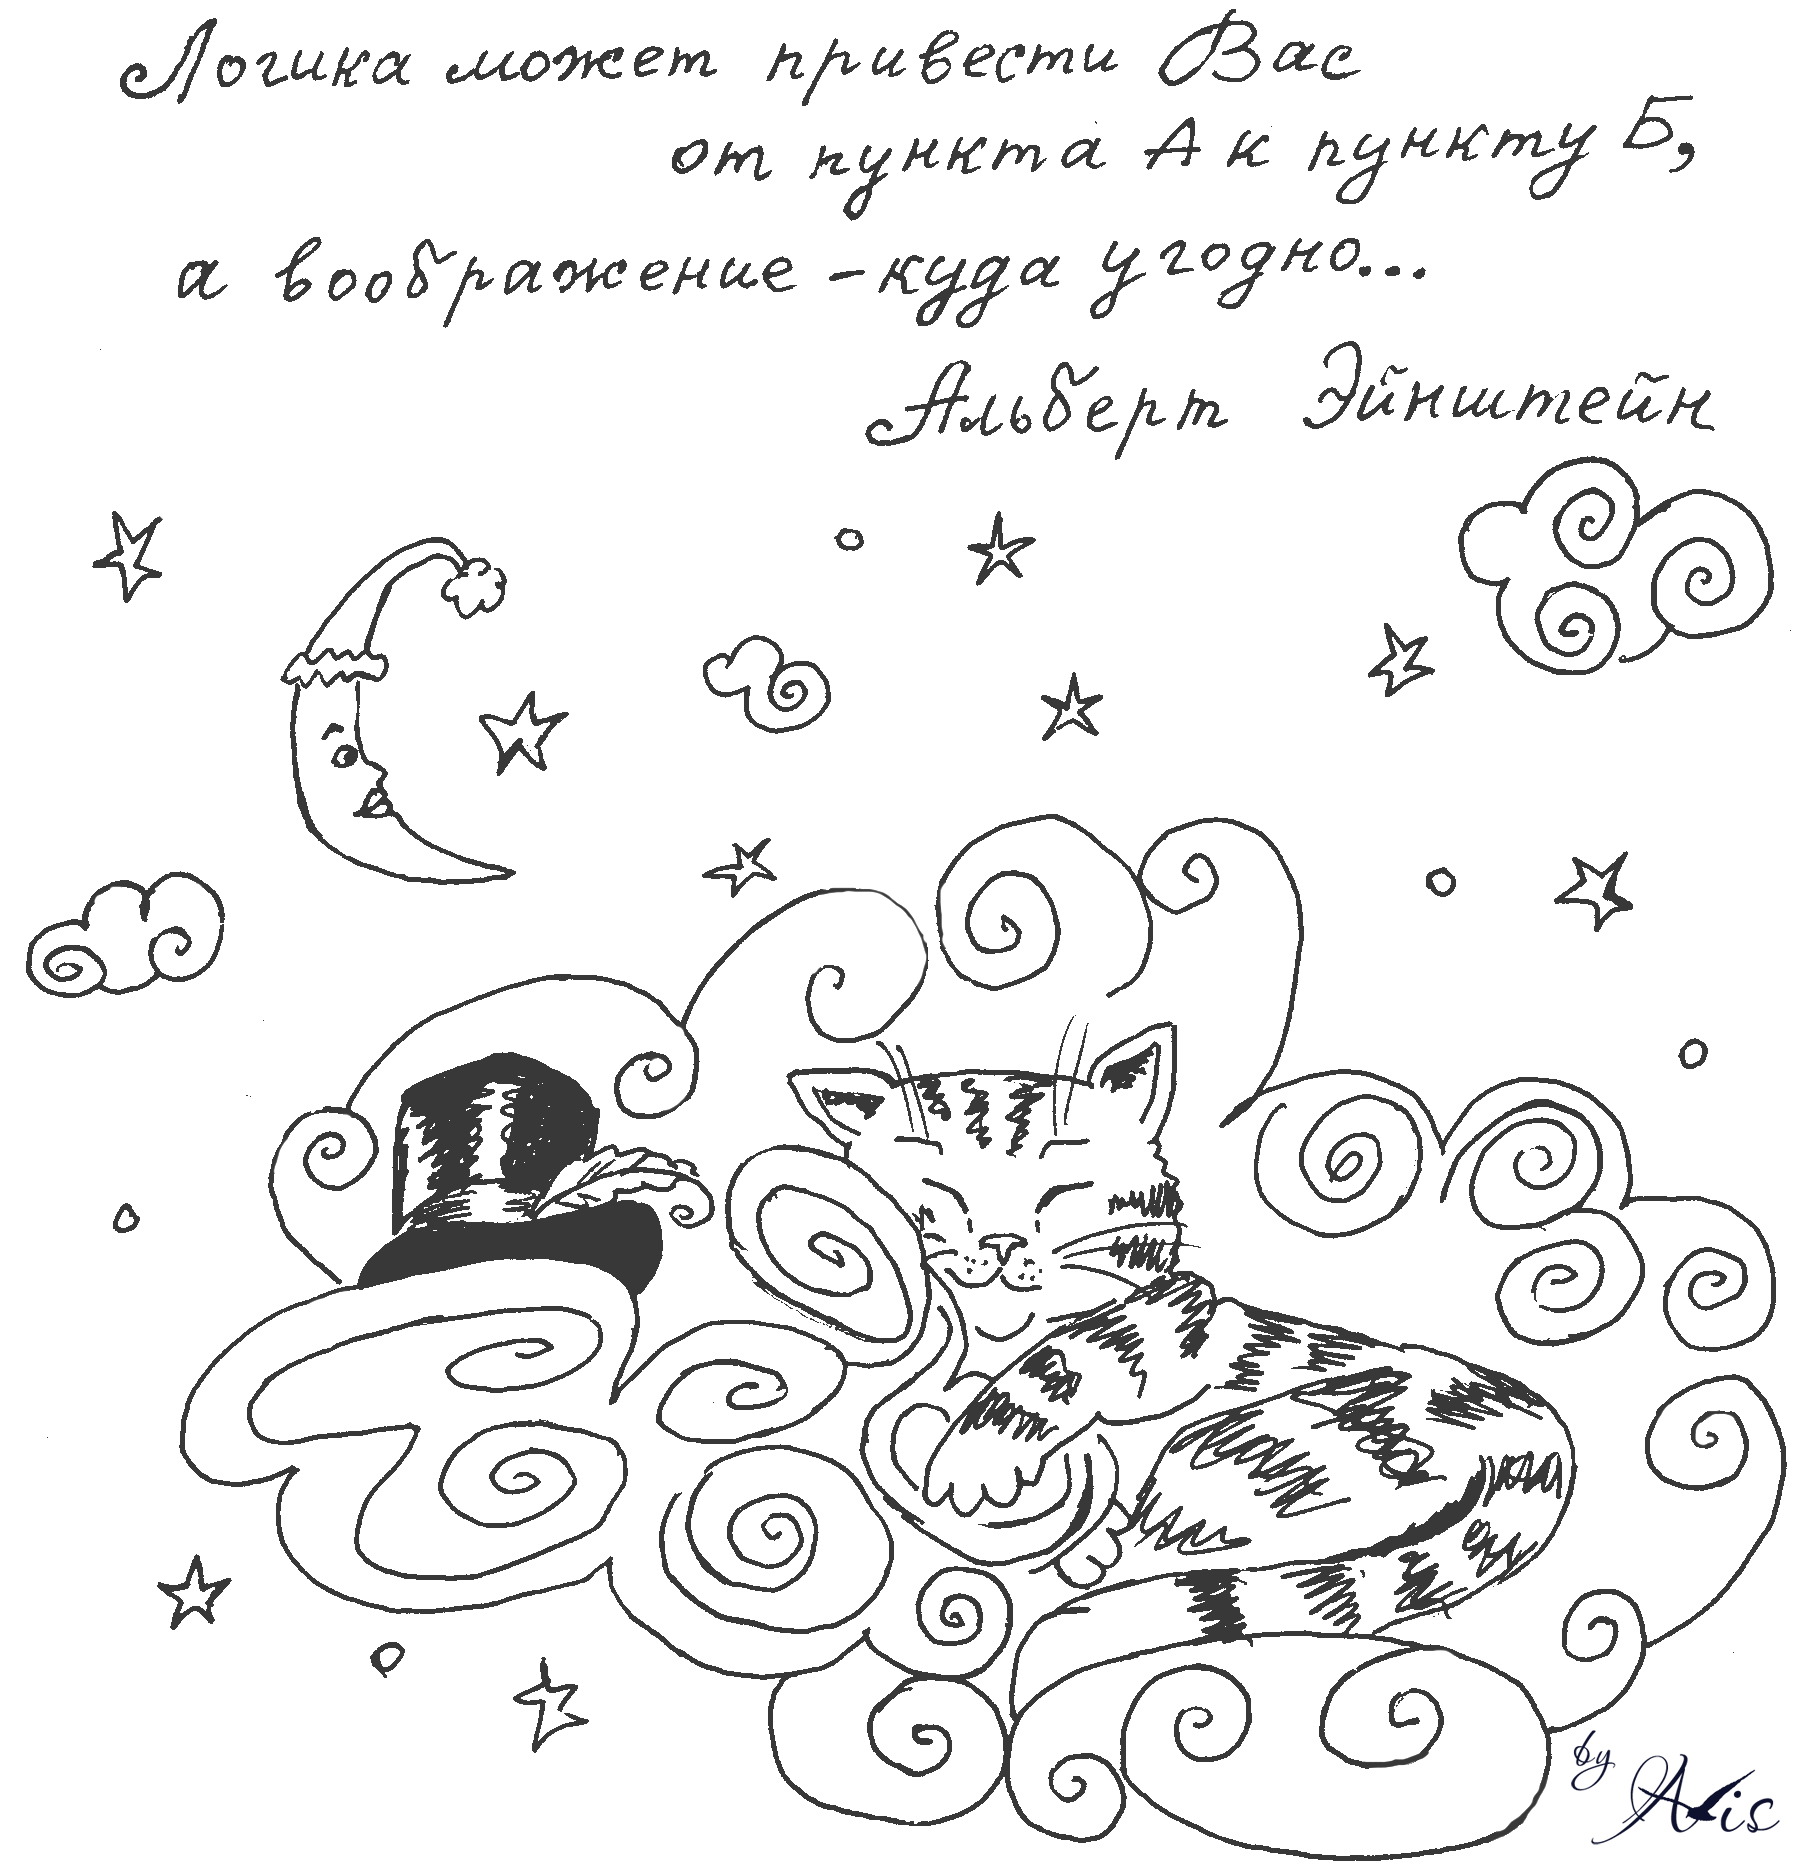 Логика может привести Вас
от пункта А к пункту Б,
а воображение - куда угодно...
Альберт Эйнштейн
by